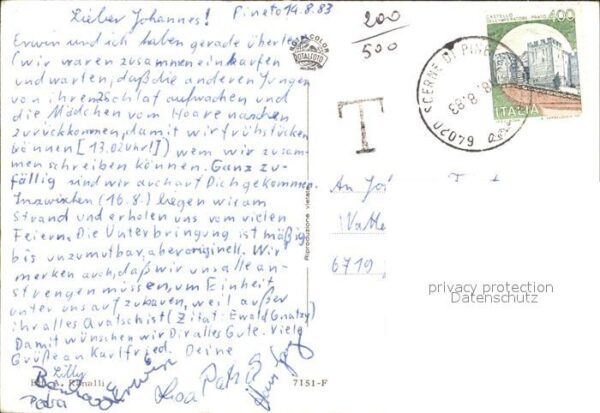 Pineto 14.8.83
Lieber Johannes!
Erwin und ich haben gerade überlegt
(wir waren zusammen einkaufen
und warten, daß die anderen Jungen
von ihrem Schlaf aufwachen und
die Mädchen vom Haare waschen
zurückkommen, damit wir frühstücken
können [13.02 Uhr!]) wem wir zusam-
men schreiben können. Ganz zu-
fällig sind wir auch auf Dich gekommen.
Inzwischen (16.8.) liegen wir am
Strand und erholen uns vom vielen
Feiern. Die Unterbringung ist mäßig
bis unzumutbar, aber originell. Wir
merken auch, daß wir uns alle an-
strengen müssen, um Einheit
unter uns aufzubauen, weil außer
ihr alles Quatsch ist (Zitat: Ewald
Damit wünschen wir Dir alles Gute. Viele
Grüße an Karlfried. Deine
Lilly
Petra
A. Ranalli
7151-F
200
500
T
ROTALCOLOR
ROTALFOTO
MILANO
Riproduzione vietata
64020 SCERNE DI PINE
18.8.83
CASTELLO
DELL'IMPERATORE · PRATO
400
ITALIA
An
6719
privacy protection
Datenschutz